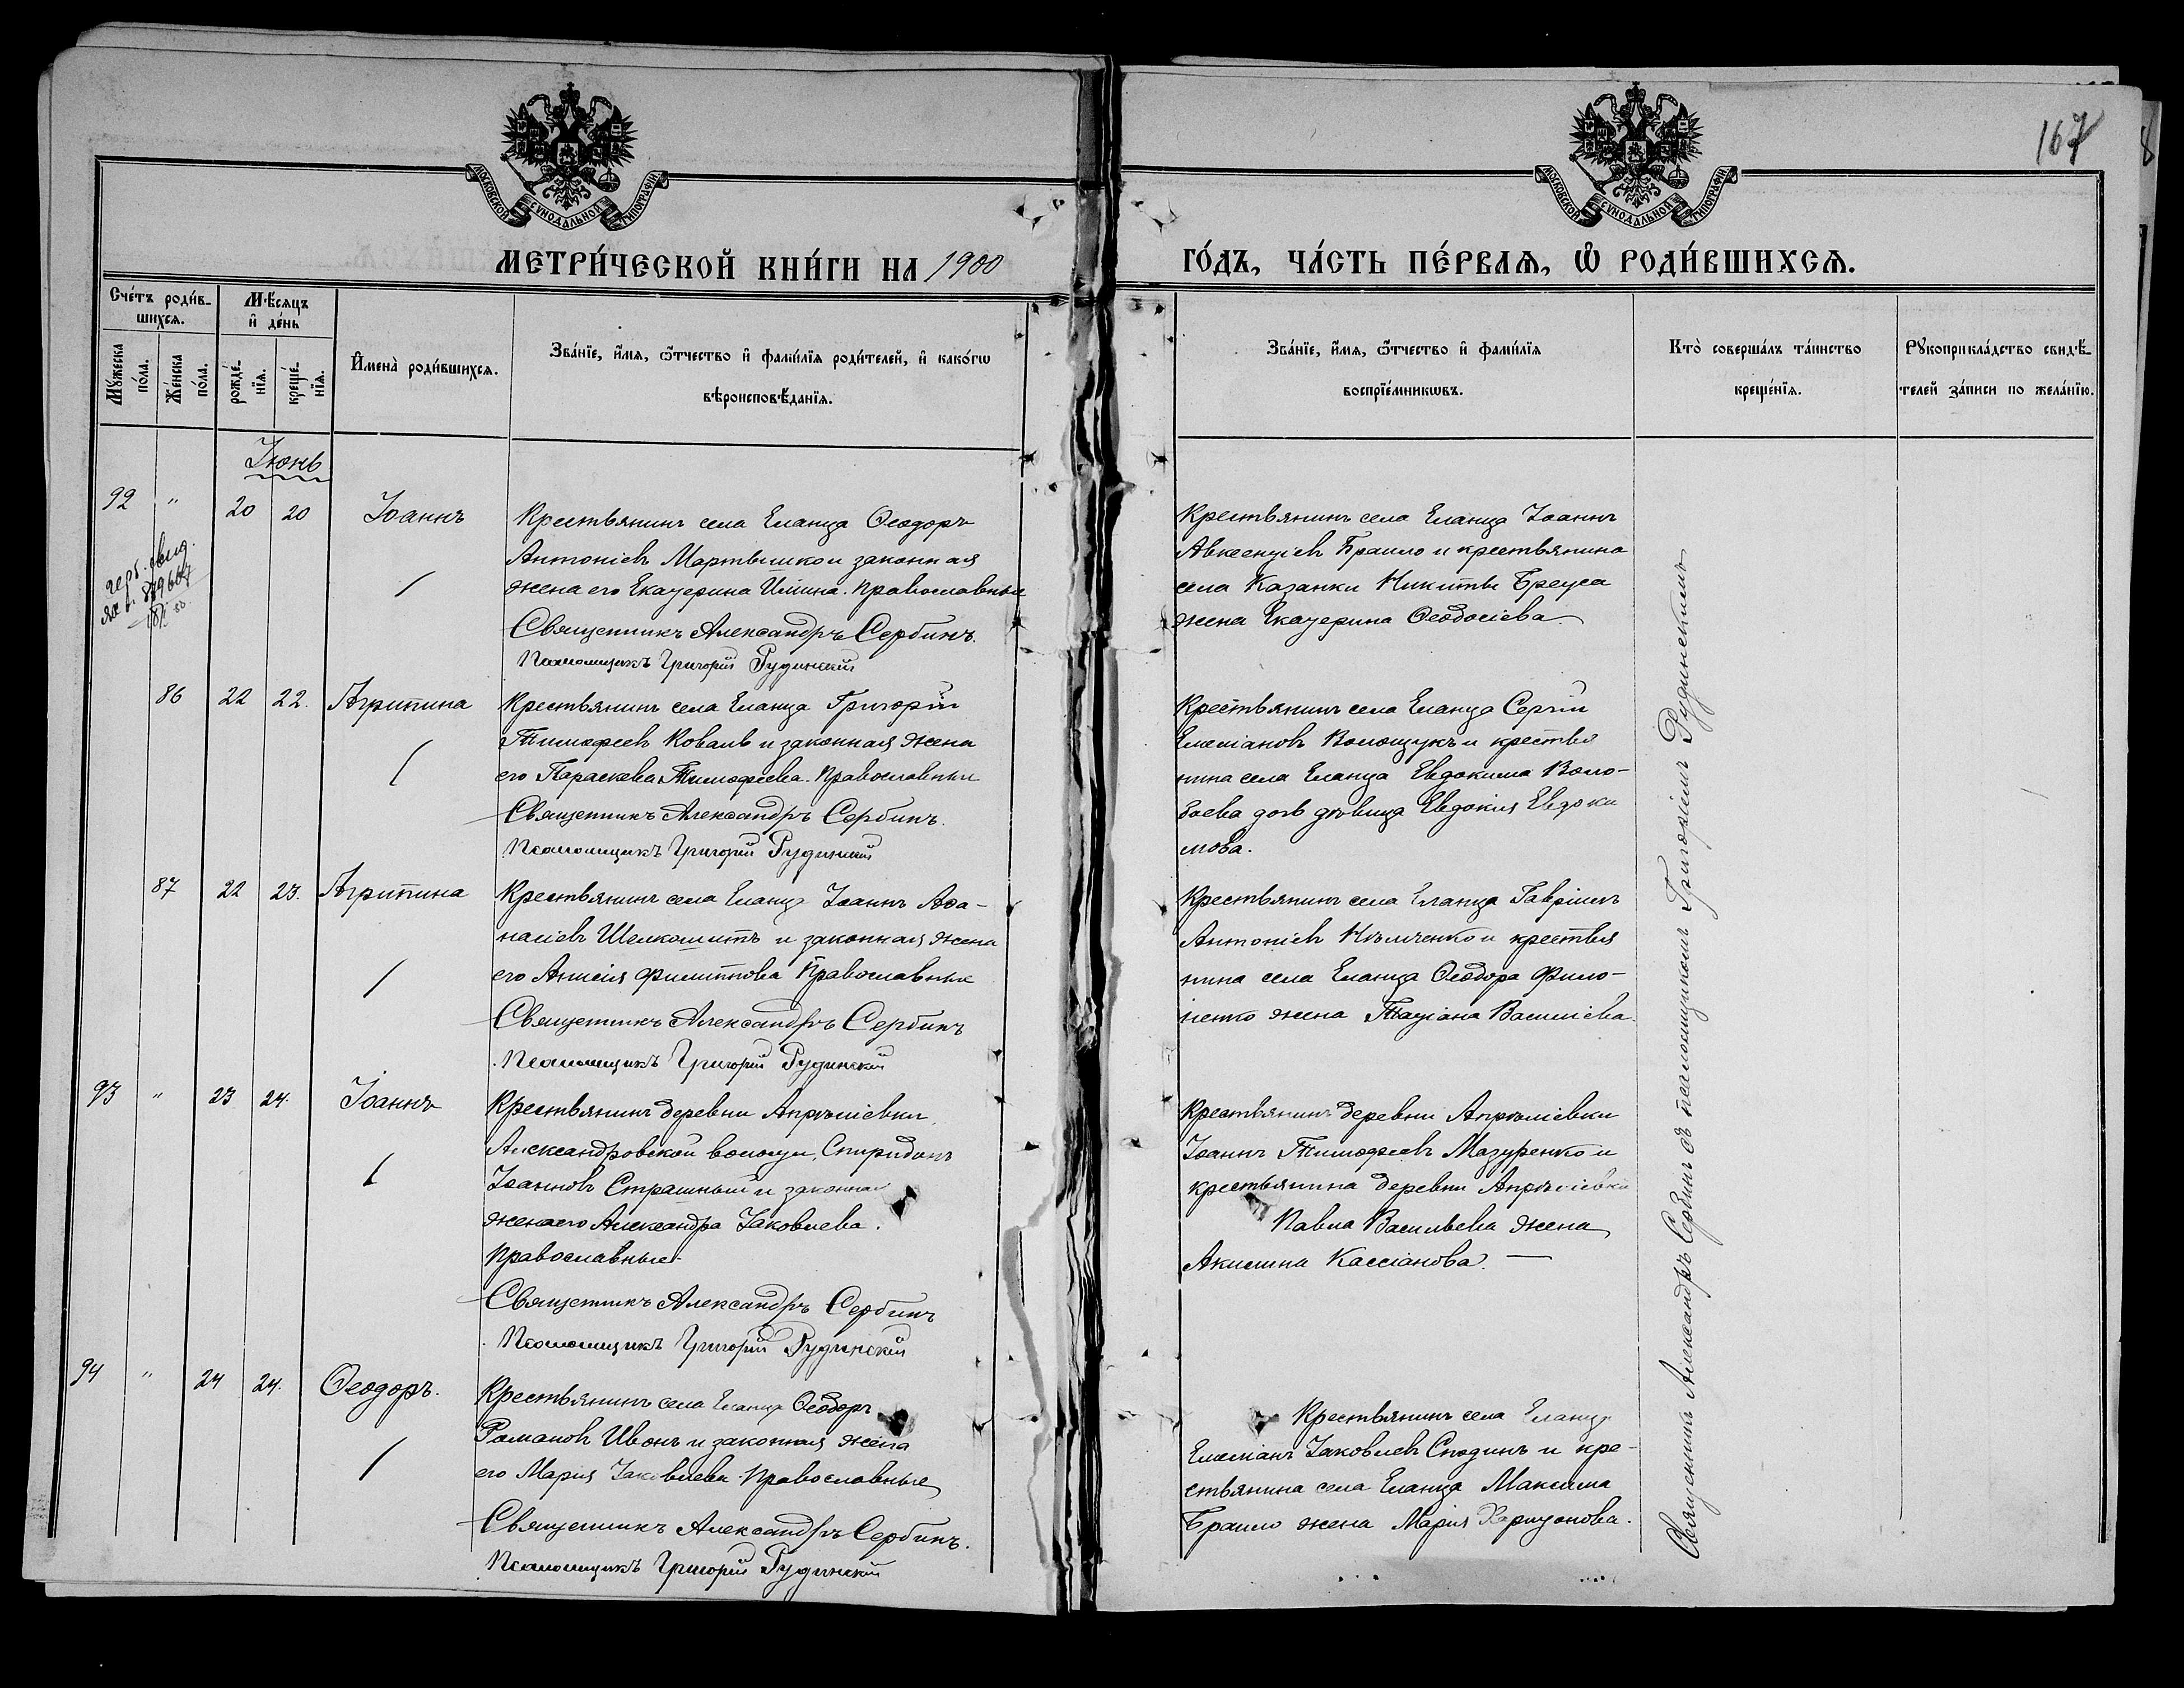 167
МОСКОВСКОЙ СѴНОДАЛЬНОЙ ТИПОГРАФІИ
МОСКОВСКОЙ СѴНОДАЛЬНОЙ ТИПОГРАФІИ
МЕТРИ́ЧЕСКОЙ КНИ́ГИ НА 1900
ГО́ДЪ, ЧА́СТЬ ПЕ́РВАѦ, Ѡ҆ РОДИ́ВШИХСѦ.
Сче́тъ роди́в-
шихсѧ.
Мѣ́сѧцъ
и҆ де́нь
Мꙋ́жеска
по́ла.
Же́нска
по́ла.
рожде́-
нїѧ.
креще́-
нїѧ.
И҆мена̀ роди́вшихсѧ.
Зва́нїе, и҆́мѧ, ѻ҆́тчество и҆ фами́лїѧ роди́телей, и҆ како́гѡ
вѣроисповѣ́данїѧ.
Зва́нїе, и҆́мѧ, ѻ҆́тчество и҆ фами́лїѧ
воспрїе́мникѡвъ.
Кто̀ соверша́лъ та́инство
креще́нїѧ.
Рꙋкоприкла́дство свидѣ́-
телей за́писи по жела́нїю.
Іюнь
92 " 20 20 Іоаннъ
Крестьянинъ села Еланца Ѳеодоръ
Антоніевъ Мартышко и законная
жена его Екатерина Ильина. Православные
Священникъ Александръ Сербинъ.
Псаломщикъ Григорій Рудинскій
Крестьянинъ села Еланца Іоаннъ
Авксентіевъ Браило и крестьянина
села Казанки Никиты Бреуса
жена Екатерина Ѳеодосіева
86 22 22. Агрипина
Крестьянинъ села Еланца Григорій
Тимофеевъ Коваль и законная жена
его Параскева Тимофеева. Православные
Священникъ Александръ Сербинъ.
Псаломщикъ Григорій Рудинскій
Крестьянинъ села Еланца Сергій
Емеліановъ Волощукъ и крестья
нина села Еланца Евдокима Воло-
боева дочь дѣвица Евдокія Евдоки
мова.
87 22 23. Агрипина
Крестьянинъ села Еланца Іоаннъ Аѳа-
насіевъ и законная жена
его Анисія Филиппова Православные
Священникъ Александръ Сербинъ
Псаломщикъ Григорій Рудинскій
Крестьянинъ села Еланца Гавріилъ
Антоніевъ Нѣмченко и крестья
нина села Еланца Ѳеодора Фило-
ненко жена Татіана Василіева.
93 " 23 24. Іоаннъ
Крестьянинъ деревни Апрѣліевки,
Александровской волости, Спиридонъ
Іоанновъ Страшный и законная
жена его Александра Іаковлева.
Православные
Священникъ Александръ Сербинъ
Псаломщикъ Григорій Рудинскій
Крестьянинъ деревни Апрѣліевки
Іоаннъ Тимофеевъ Мазуренко и
крестьянина деревни Апрѣліевки
Павла Васильева жена
Акилина Кассіанова. —
94 " 24 24. Ѳеодоръ.
Крестьянинъ села Еланца Ѳеодоръ
Романовъ Ивонъ и законная жена
его Марія Іаковлева. Православные
Священникъ Александръ Сербинъ.
Псаломщикъ Григорій Рудинскій
Крестьянинъ села Еланца
Емеліанъ Іаковлевъ Сподинъ и кре-
стьянина села Еланца Максима
Браило жена Марія Харитонова.
Священникъ Александръ Сербинъ съ псаломщикомъ Григоріемъ Рудинскимъ